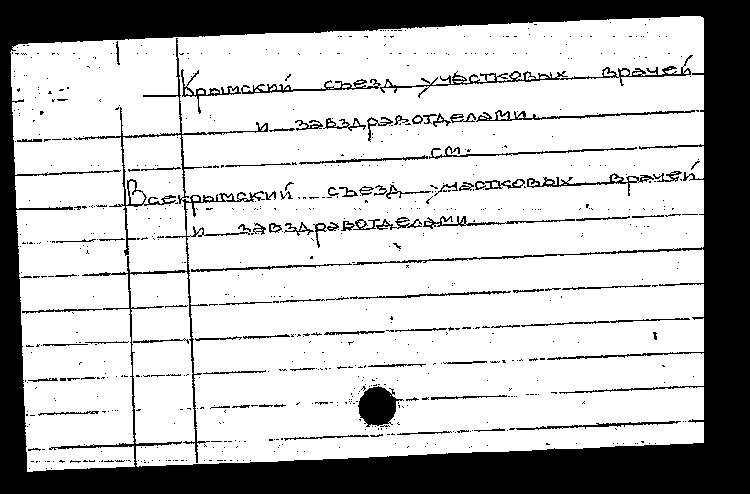 Крымский съезд участковых врачей
и завздравотделами.
см.
Всекрымский съезд участковых врачей
и завздравотделами.